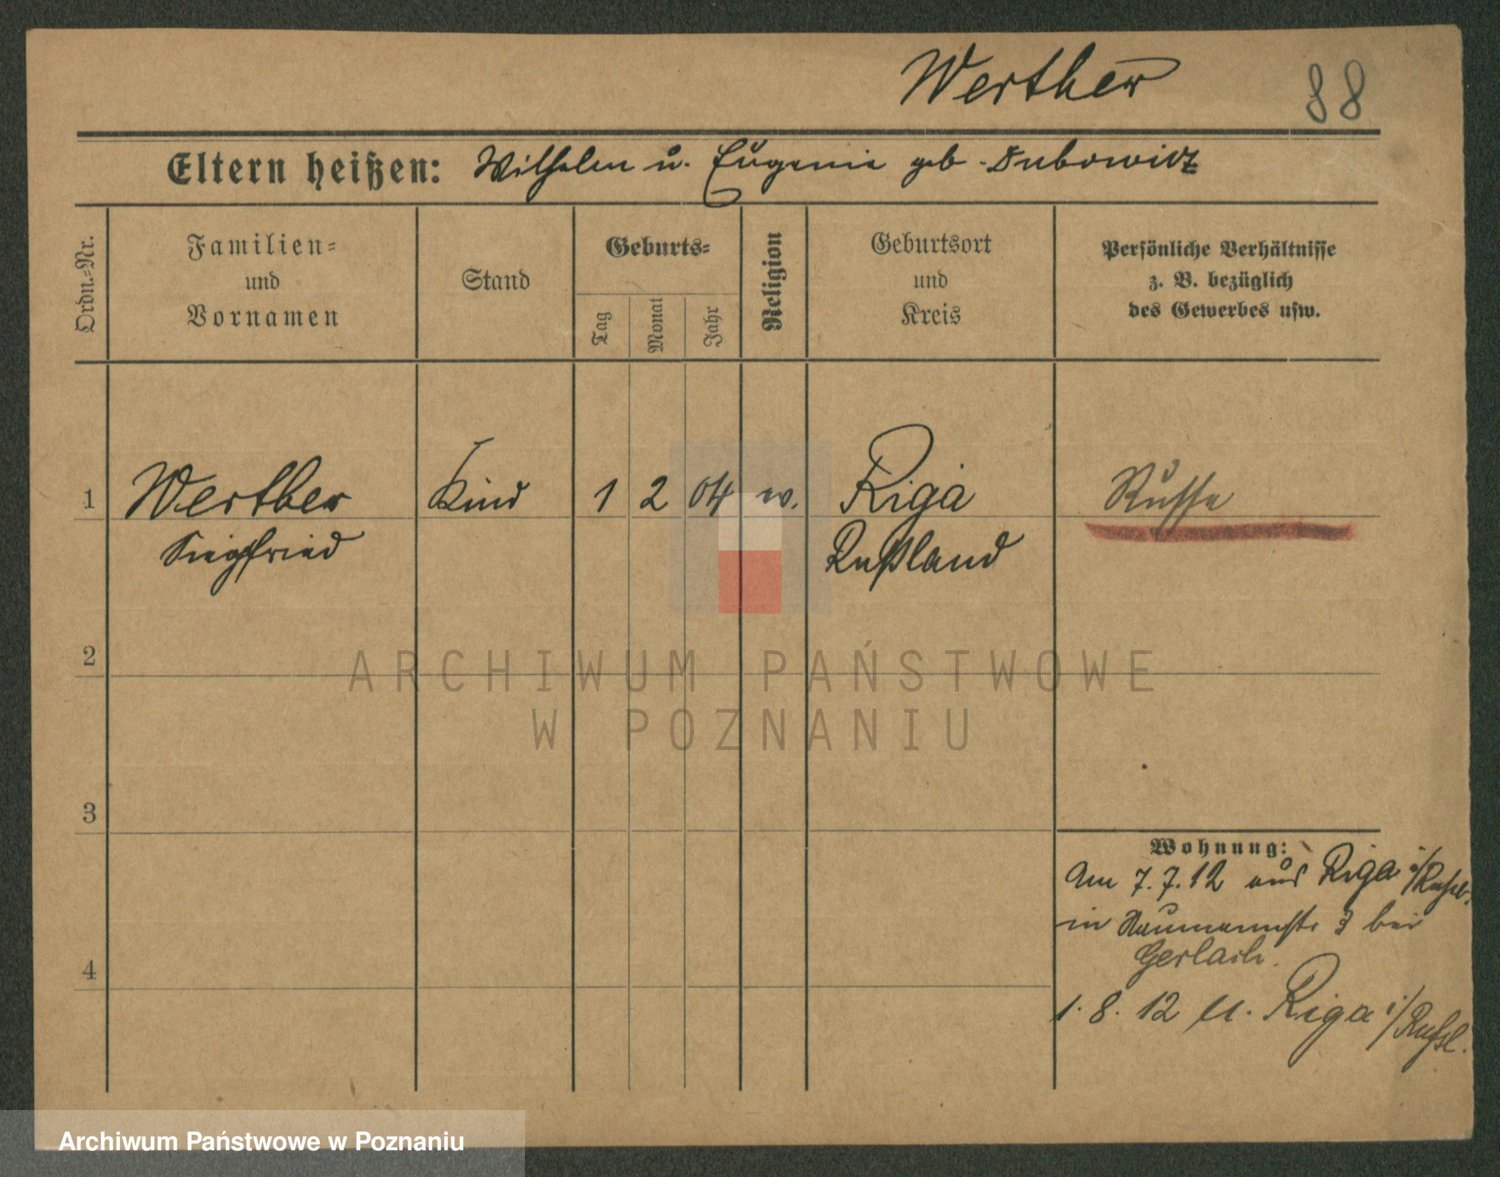 Werther 88
Eltern heißen: Wilhelm u. Eugenie geb. Dubowicz
Ordn.=Nr.
Familien=
und
Vornamen
Stand
Geburts=
Tag
Monat
Jahr
Religion
Geburtsort
und
Kreis
Persönliche Verhältnisse
z. B. bezüglich
des Gewerbes usw.
1 Werther Kind 1 2 04 Riga Russe
Siegfried Rußland
2
3
4
Wohnung:
Am 7.7.12 aus Riga i/Russl.
in Naumannstr 3 bei
Gerlach.
1. 8. 12 n. Riga i/Russl.
ARCHIWUM PAŃSTWOWE
W POZNANIU
Archiwum Państwowe w Poznaniu